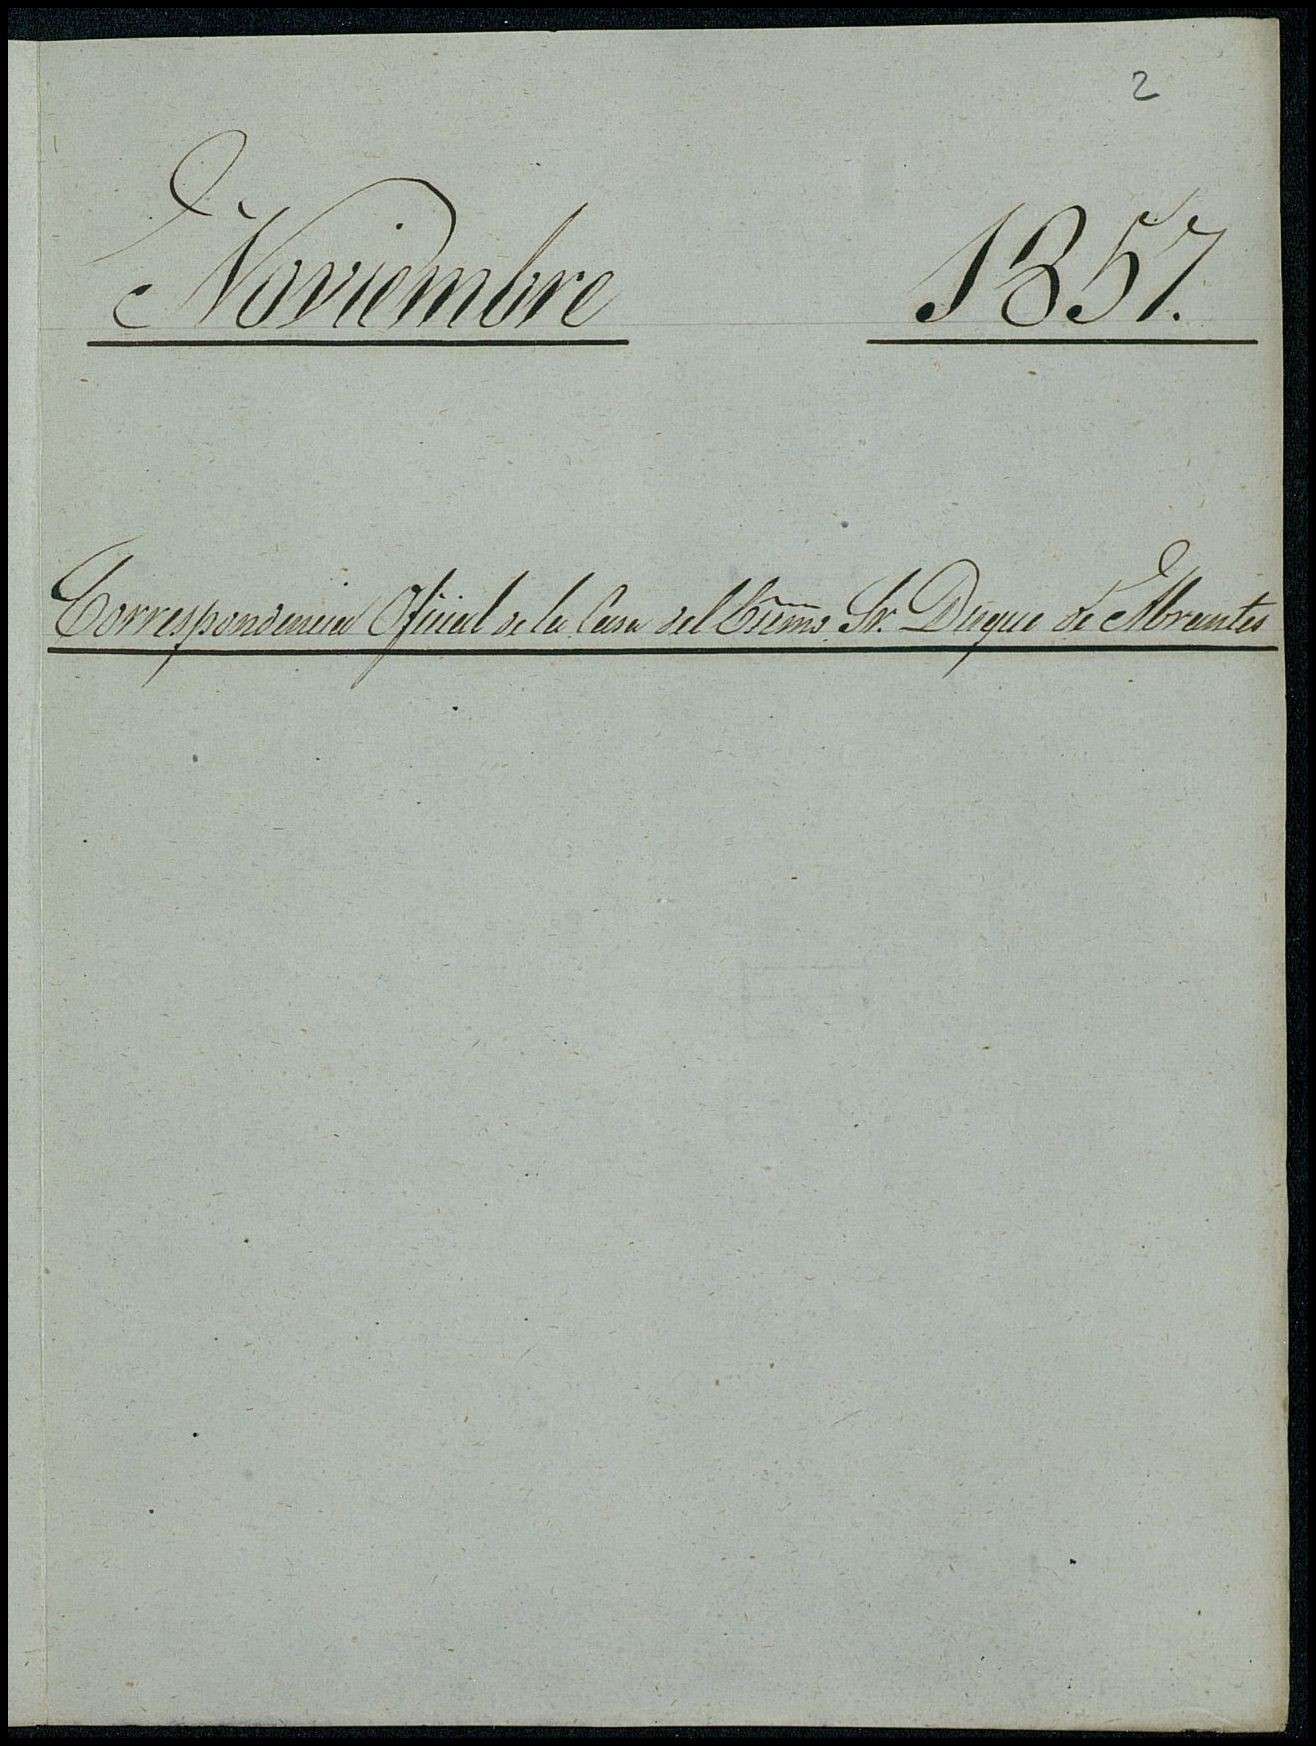 2
Noviembre 1857.
Correspondencia Oficial de la Casa del Escmo. Sr. Duque de Abrantes